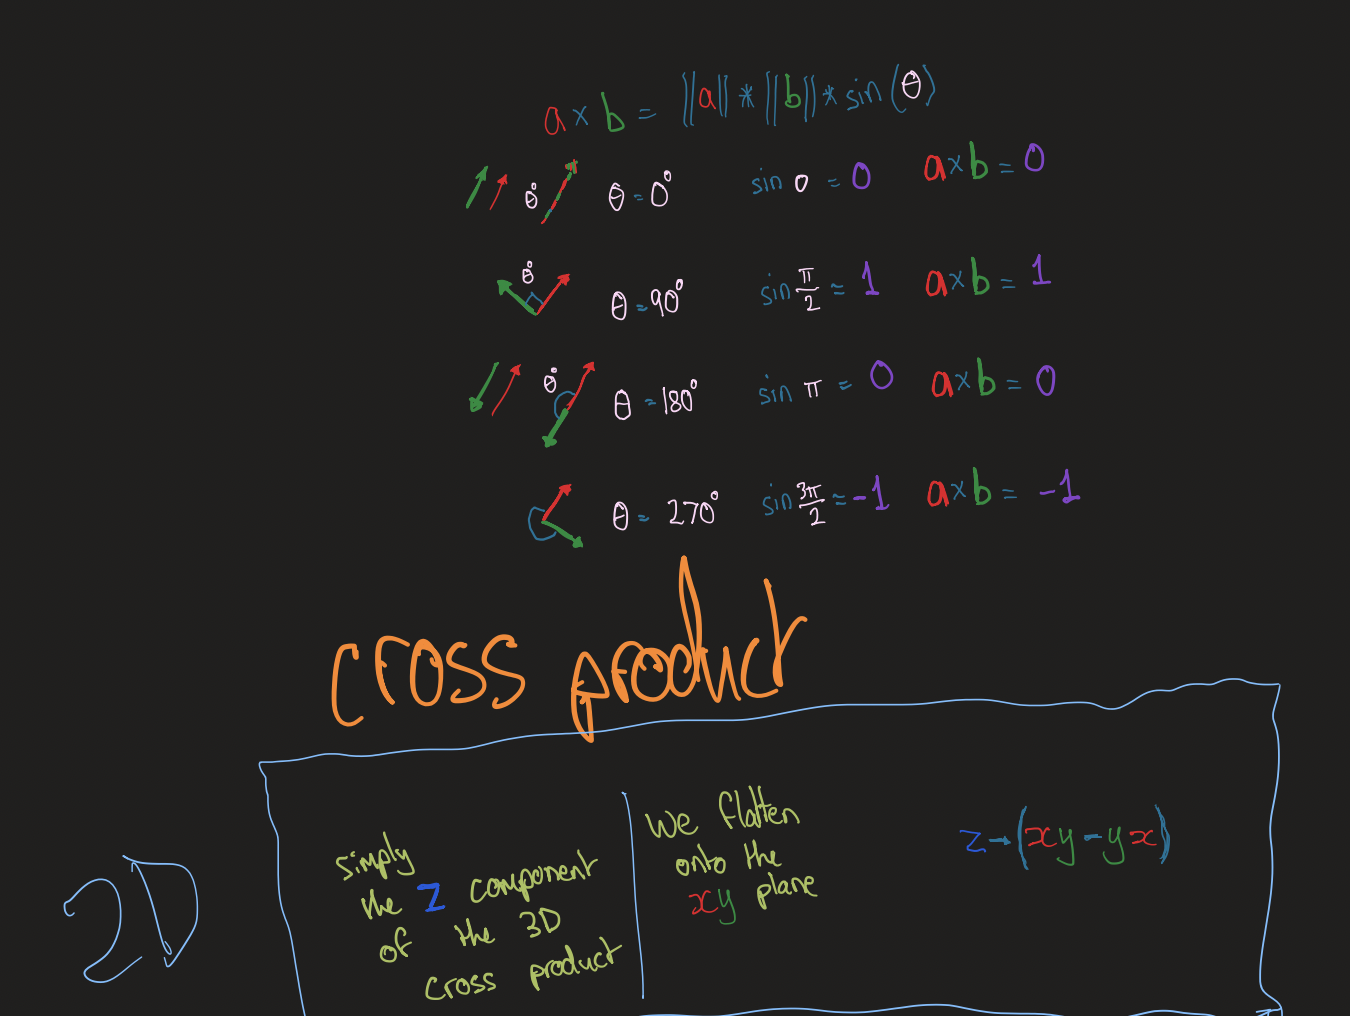 a × b = ||a|| * ||b|| * sin(θ)
θ° θ = 0° sin 0 = 0 a×b = 0
θ° θ = 90° sin π/2 = 1 a×b = 1
θ° θ = 180° sin π = 0 a×b = 0
θ = 270° sin 3π/2 = -1 a×b = -1
cross product
2D
simply
the z component
of the 3D
cross product
We flatten
onto the
xy plane
z → (xy - yx)